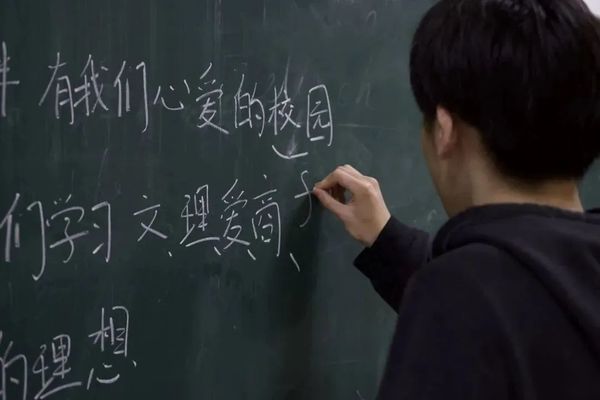 有我们心爱的校园
们学习文、理、爱、商、
的理想